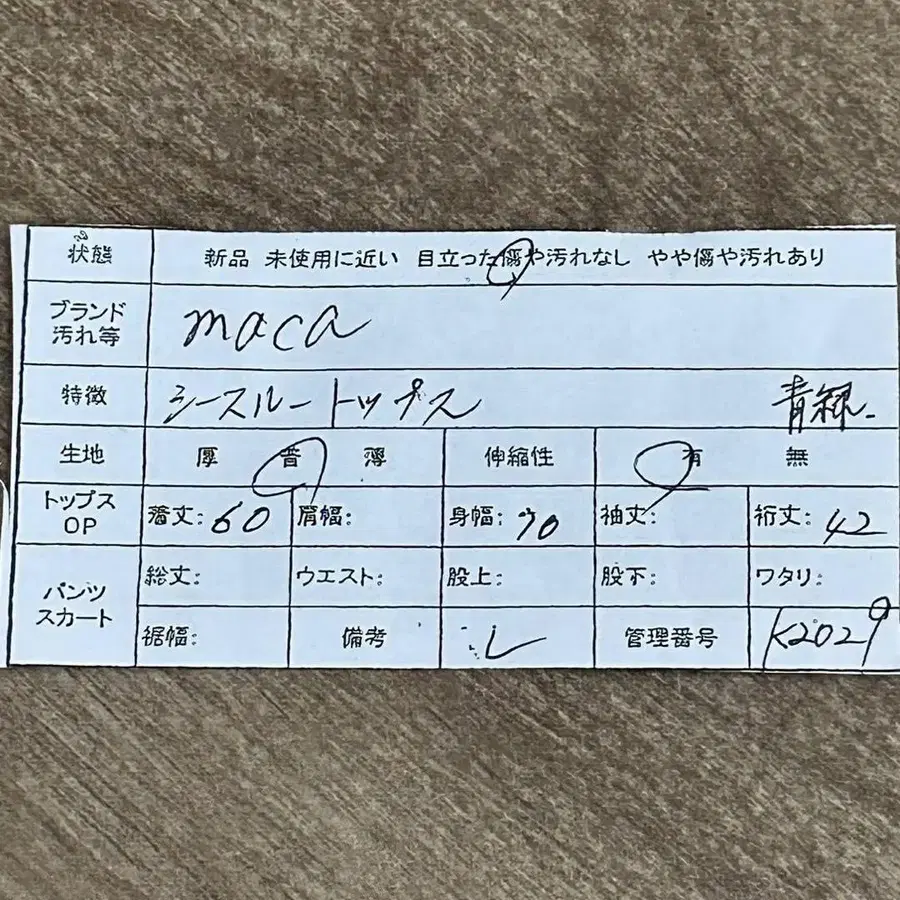 状態 新品 未使用に近い 目立った傷や汚れなし やや傷や汚れあり
ブランド
汚れ等
maca
特徴 シースルートップス 青緑
生地 厚 普 薄 伸縮性 有 無
トップス
OP
着丈: 60 肩幅: 身幅: 70 袖丈: 裄丈: 42
パンツ
スカート
総丈: ウエスト: 股上: 股下: ワタリ:
裾幅: 備考 L 管理番号 K2029